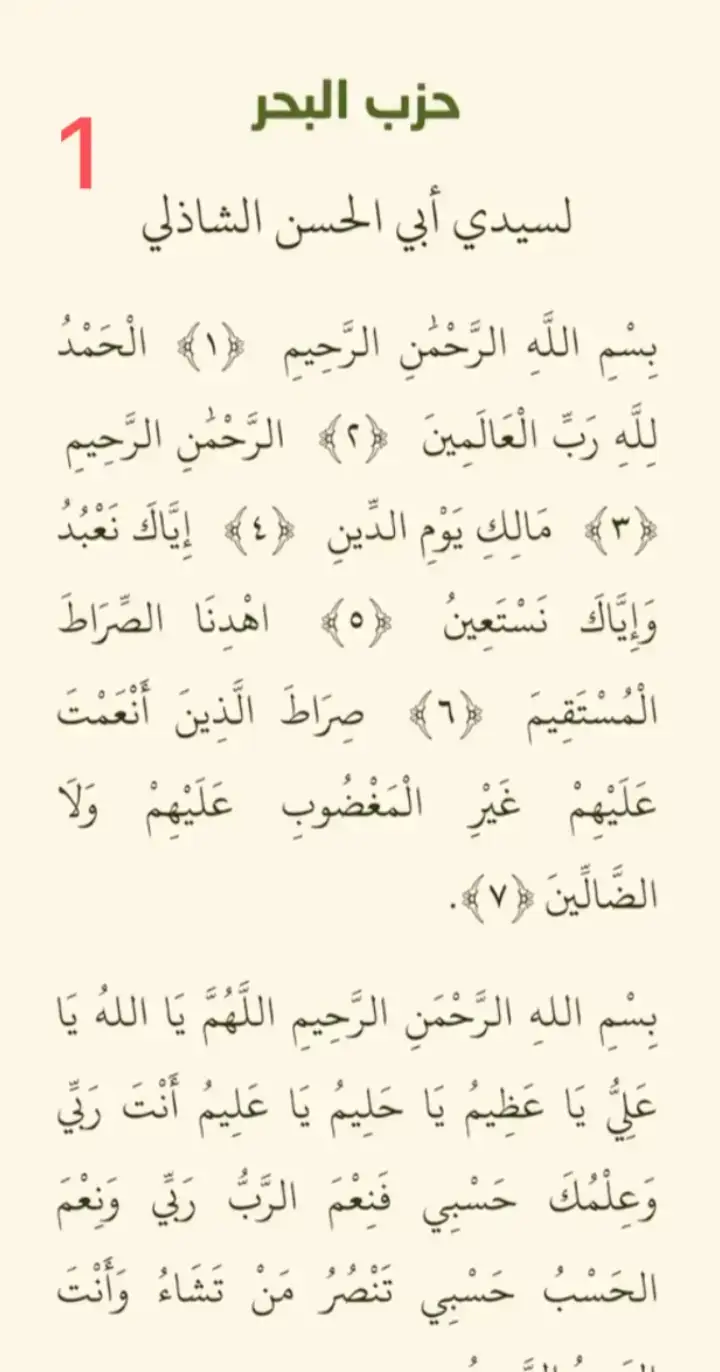 حزب البحر
1
لسيدي أبي الحسن الشاذلي
بِسْمِ اللَّهِ الرَّحْمَٰنِ الرَّحِيمِ ﴿١﴾ الْحَمْدُ
لِلَّهِ رَبِّ الْعَالَمِينَ ﴿٢﴾ الرَّحْمَٰنِ الرَّحِيمِ
﴿٣﴾ مَالِكِ يَوْمِ الدِّينِ ﴿٤﴾ إِيَّاكَ نَعْبُدُ
وَإِيَّاكَ نَسْتَعِينُ ﴿٥﴾ اهْدِنَا الصِّرَاطَ
الْمُسْتَقِيمَ ﴿٦﴾ صِرَاطَ الَّذِينَ أَنْعَمْتَ
عَلَيْهِمْ غَيْرِ الْمَغْضُوبِ عَلَيْهِمْ وَلَا
الضَّالِّينَ ﴿٧﴾.
بِسْمِ اللهِ الرَّحْمَنِ الرَّحِيمِ اللَّهُمَّ يَا اللهُ يَا
عَلِيُّ يَا عَظِيمُ يَا حَلِيمُ يَا عَلِيمُ أَنْتَ رَبِّي
وَعِلْمُكَ حَسْبِي فَنِعْمَ الرَّبُّ رَبِّي وَنِعْمَ
الحَسْبُ حَسْبِي تَنْصُرُ مَنْ تَشَاءُ وَأَنْتَ